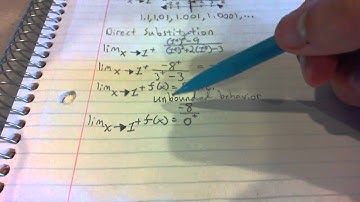 1.1, 1.01, 1.001, 1.0001, ...
Direct Substitution
lim x→1⁺ (1⁺)²-9 / (1⁺)²+2(1⁺)-3
lim x→1⁺ -8⁺ / 3⁺-3 =
lim x→1⁺ f(x) =
unbounded behavior
lim x→1⁺ f(x) = -8 / 0⁺